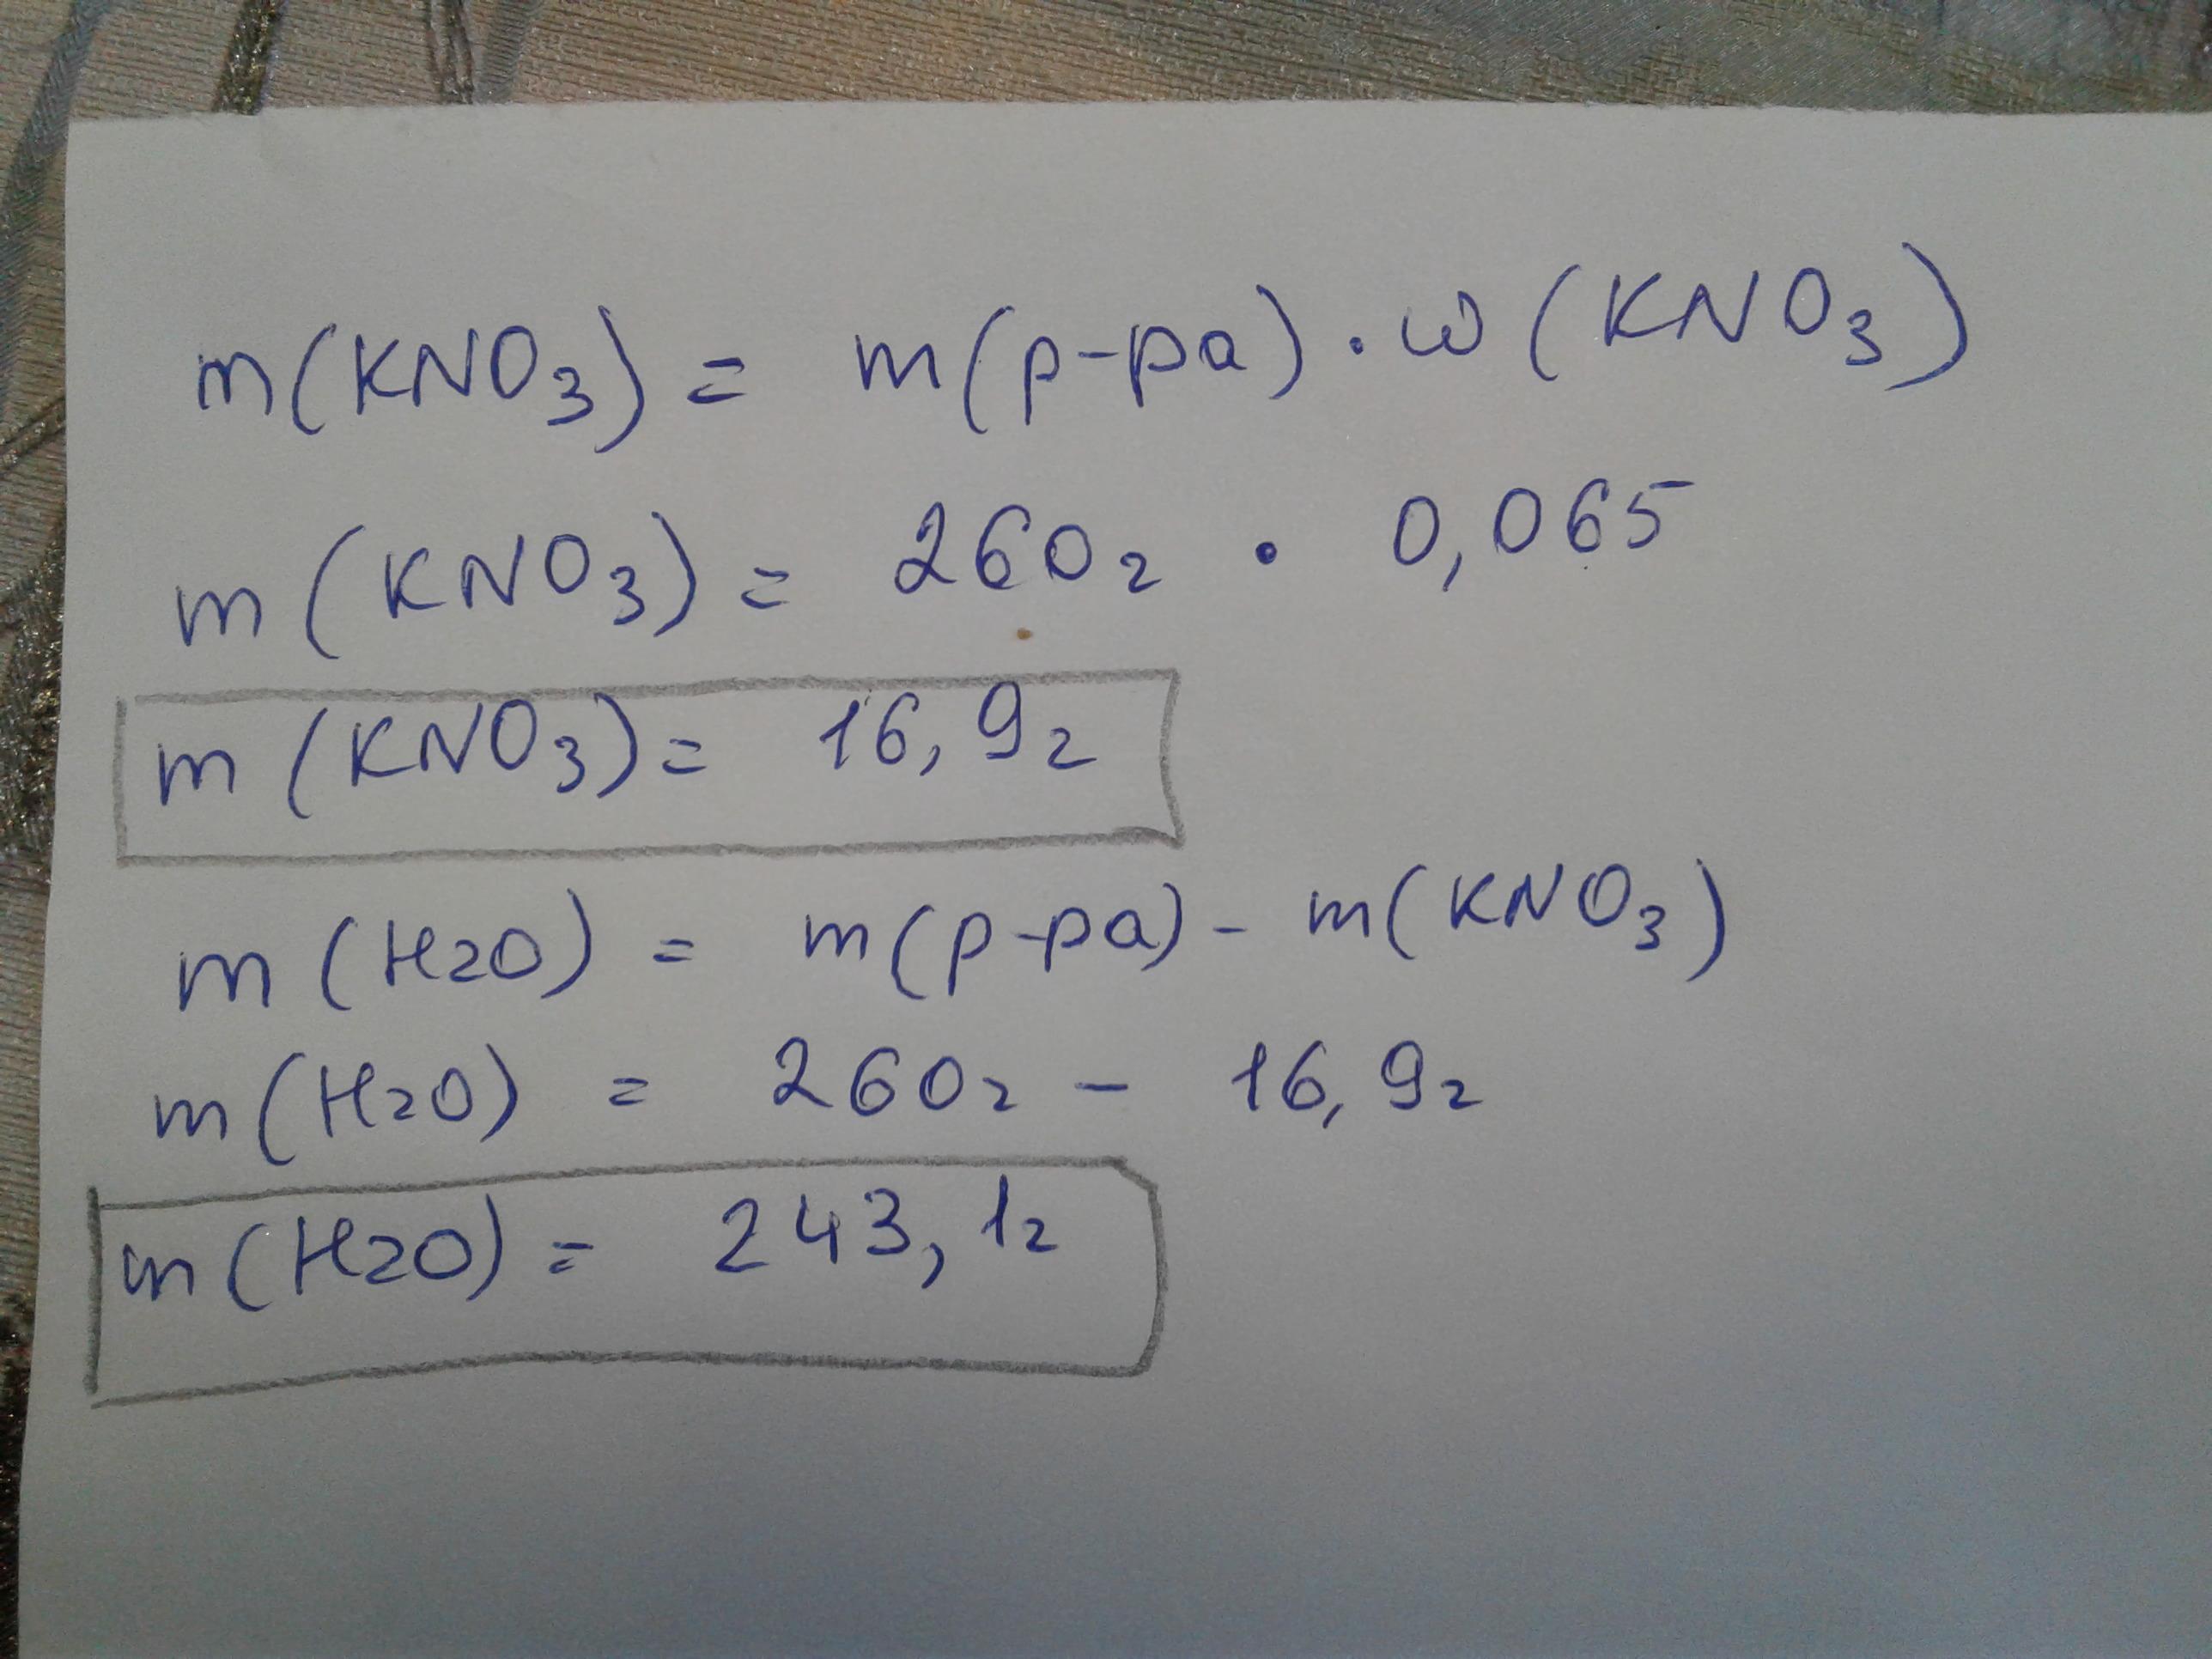 m(KNO₃) = m(р-ра) · ω(KNO₃)
m(KNO₃) = 260г · 0,065
m(KNO₃) = 16,9г
m(H2O) = m(р-ра) - m(KNO₃)
m(H2O) = 260г - 16,9г
m(H2O) = 243,1г